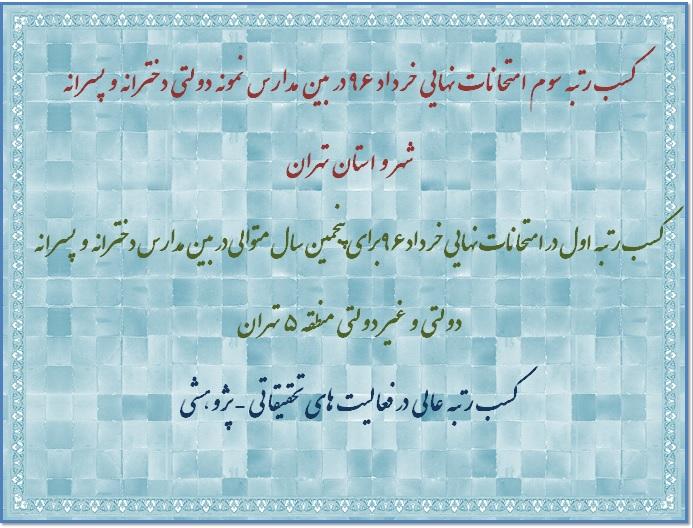 کسب رتبه سوم امتحانات نهایی خرداد ۹۶ در بین مدارس نمونه دولتی دخترانه و پسرانه
شهر و استان تهران
کسب رتبه اول در امتحانات نهایی خرداد ۹۶ برای پنجمین سال متوالی در بین مدارس دخترانه و پسرانه
دولتی و غیر دولتی منطقه ۵ تهران
کسب رتبه عالی در فعالیت های تحقیقاتی - پژوهشی